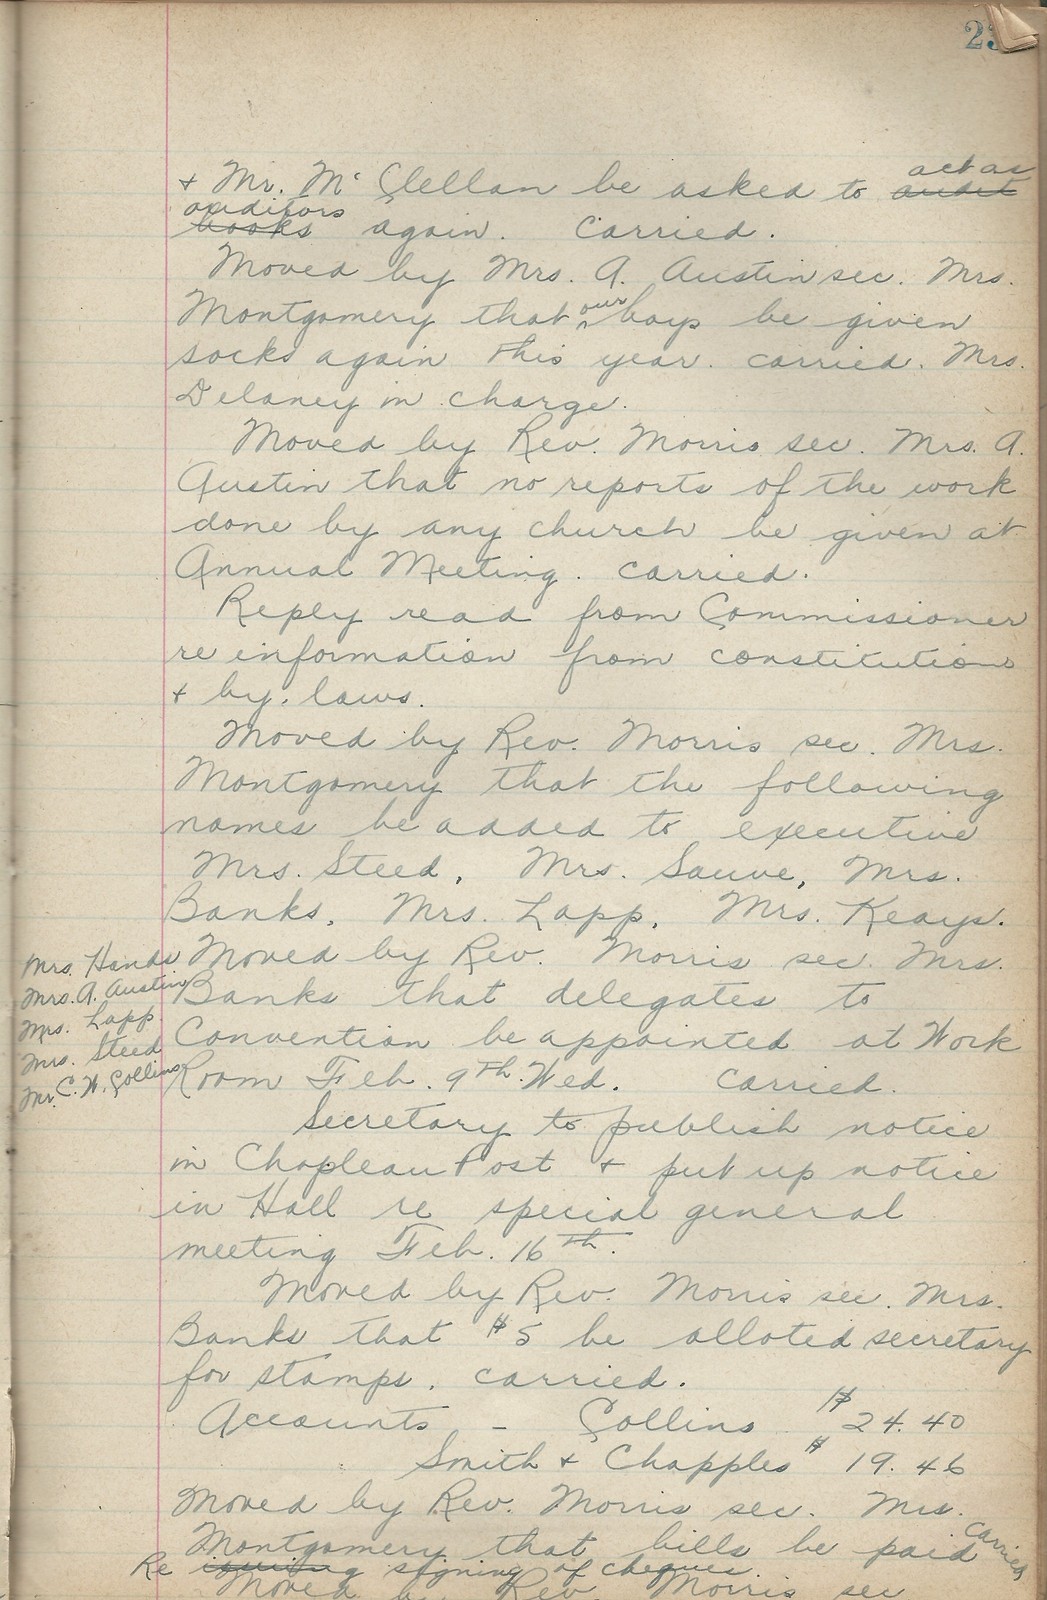 23
+ Mr. McClellan be asked to audit act as
books auditors again. Carried.
Moved by Mrs. A. Austin sec. Mrs.
Montgomery that our boys be given
socks again this year. carried. Mrs.
Delaney in charge.
Moved by Rev. Morris sec. Mrs. A.
Austin that no reports of the work
done by any church be given at
Annual Meeting. carried.
Reply read from Commissioner
re information from constitution
+ by. laws.
Moved by Rev. Morris sec. Mrs.
Montgomery that the following
names be added to executive
Mrs. Steed, Mrs. Sauve, Mrs.
Banks, Mrs. Lapp, Mrs. Keays.
Moved by Rev. Morris sec. Mrs.
Banks that delegates to
Convention be appointed at Work
Room Feb. 9th. Wed. carried.
Mrs. Hands
Mrs. A. Austin
Mrs. Lapp
Mrs. Steed
Mr. C. W. Collins
Secretary to publish notice
in Chapleau Post + put up notice
in Hall re special general
meeting Feb. 16th.
Moved by Rev. Morris sec. Mrs.
Banks that $5 be alloted secretary
for stamps. carried.
Accounts - Collins $24.40
Smith + Chapples $19.46
Moved by Rev. Morris sec. Mrs.
Montgomery that bills be paid carried
Re signing of cheques.
Moved by Rev. Morris sec